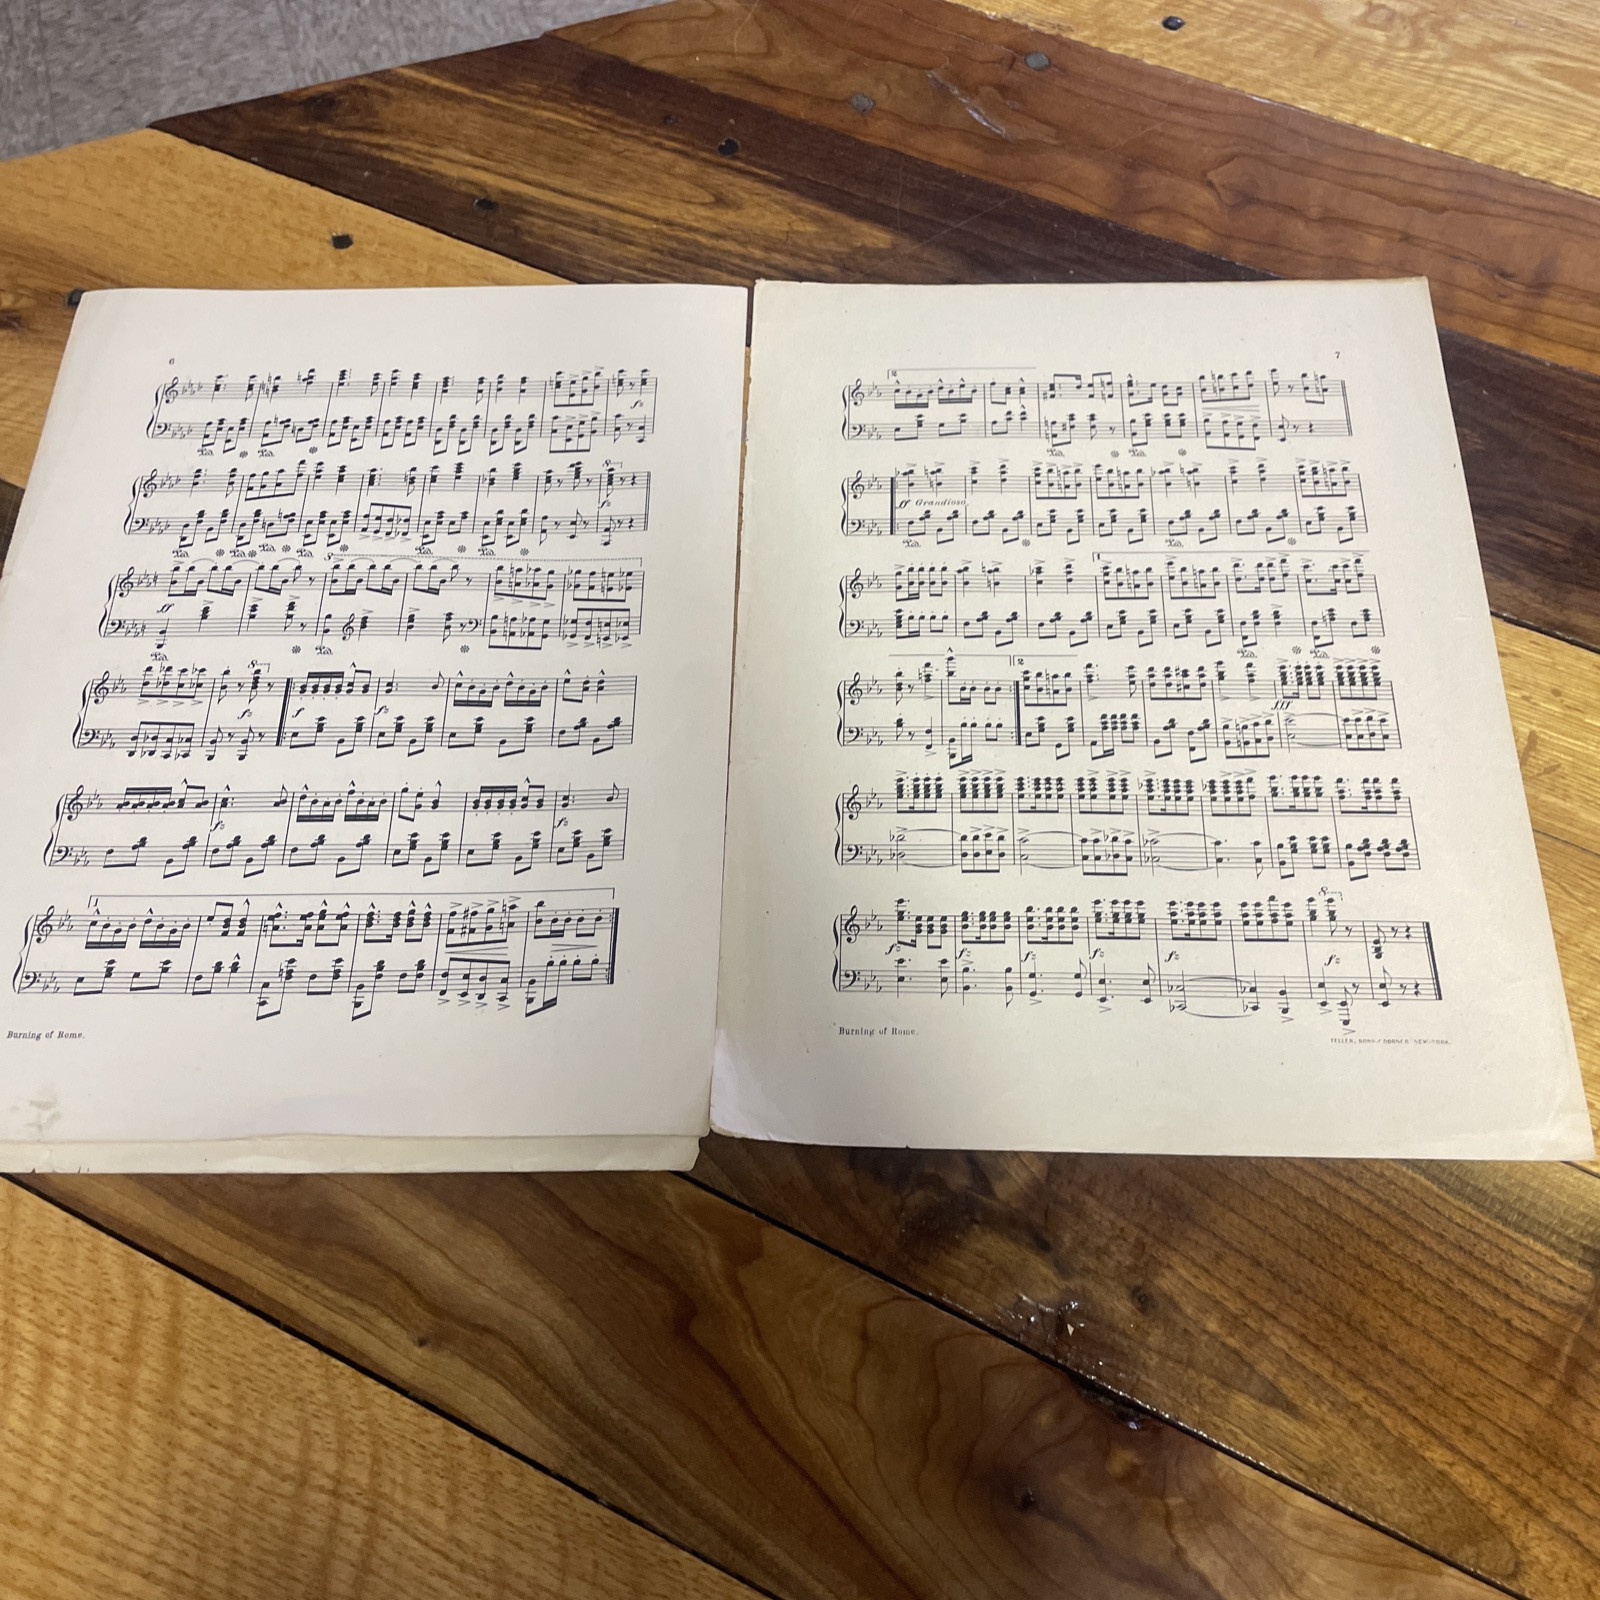 6
Burning of Rome.
7
ff Grandioso.
fff
Burning of Rome.
TELLER, SONS & DORNER NEW-YORK.